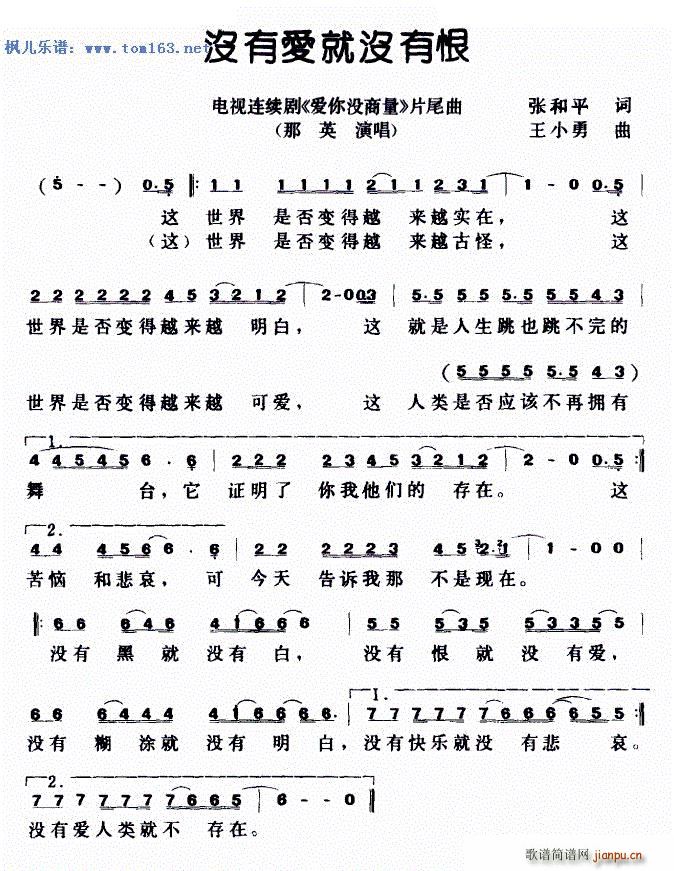 枫儿乐谱：www.tom163.net
沒有愛就沒有恨
电视连续剧《爱你没商量》片尾曲 张和平 词
（那 英 演唱） 王小勇 曲
(5 - -) 0.5 ‖: 1 1 1 1 1 1 2 1 1 2 3 1 | 1 - 0 0 0.5 |
这 世界 是否变得越 来越实在， 这
（这）世界 是否变得越 来越古怪， 这
2 2 2 2 2 2 4 5 3 2 1 2 | 2 - 0 0 3 | 5. 5 5 5 5 5 5 5 4 3 |
世界是否变得越来越 明白， 这 就是人生跳也跳不完的
(5 5 5 5 5. 5 4 3)
世界是否变得越来越 可爱， 这 人类是否应该不再拥有
1.
4 4 5 4 5 6 . 6 | 2 2 2 2 3 4 5 3 2 1 2 | 2 - 0 0 0.5 :‖
舞 台，它 证明了 你我他们的 存在。 这
2.
4 4 4 5 6 6 . 6 | 2 2 2 2 3 2 4 5 2 1 | 1 - 0 0 |
苦恼 和悲哀， 可 今天 告诉我那 不是现在。
‖: 6 6 6 4 6 4 1 6 6 6 | 5 5 5 3 5 5 3 3 5 5 |
没有 黑 就 没有 白， 没有 恨 就 没 有爱，
6 6 6 4 4 4 4 1 6 6 6 6. | 7 7 7 7 7 7 6 6 6 6 5 5 :‖
1.
没有 糊 涂就 没有 明白，没有快乐就没 有悲 哀。
2.
7 7 7 7 7 7 7 6 6 5 | 6 - - 0 ‖
没有爱人类就不 存在。
歌谱简谱网
jianpu.cn